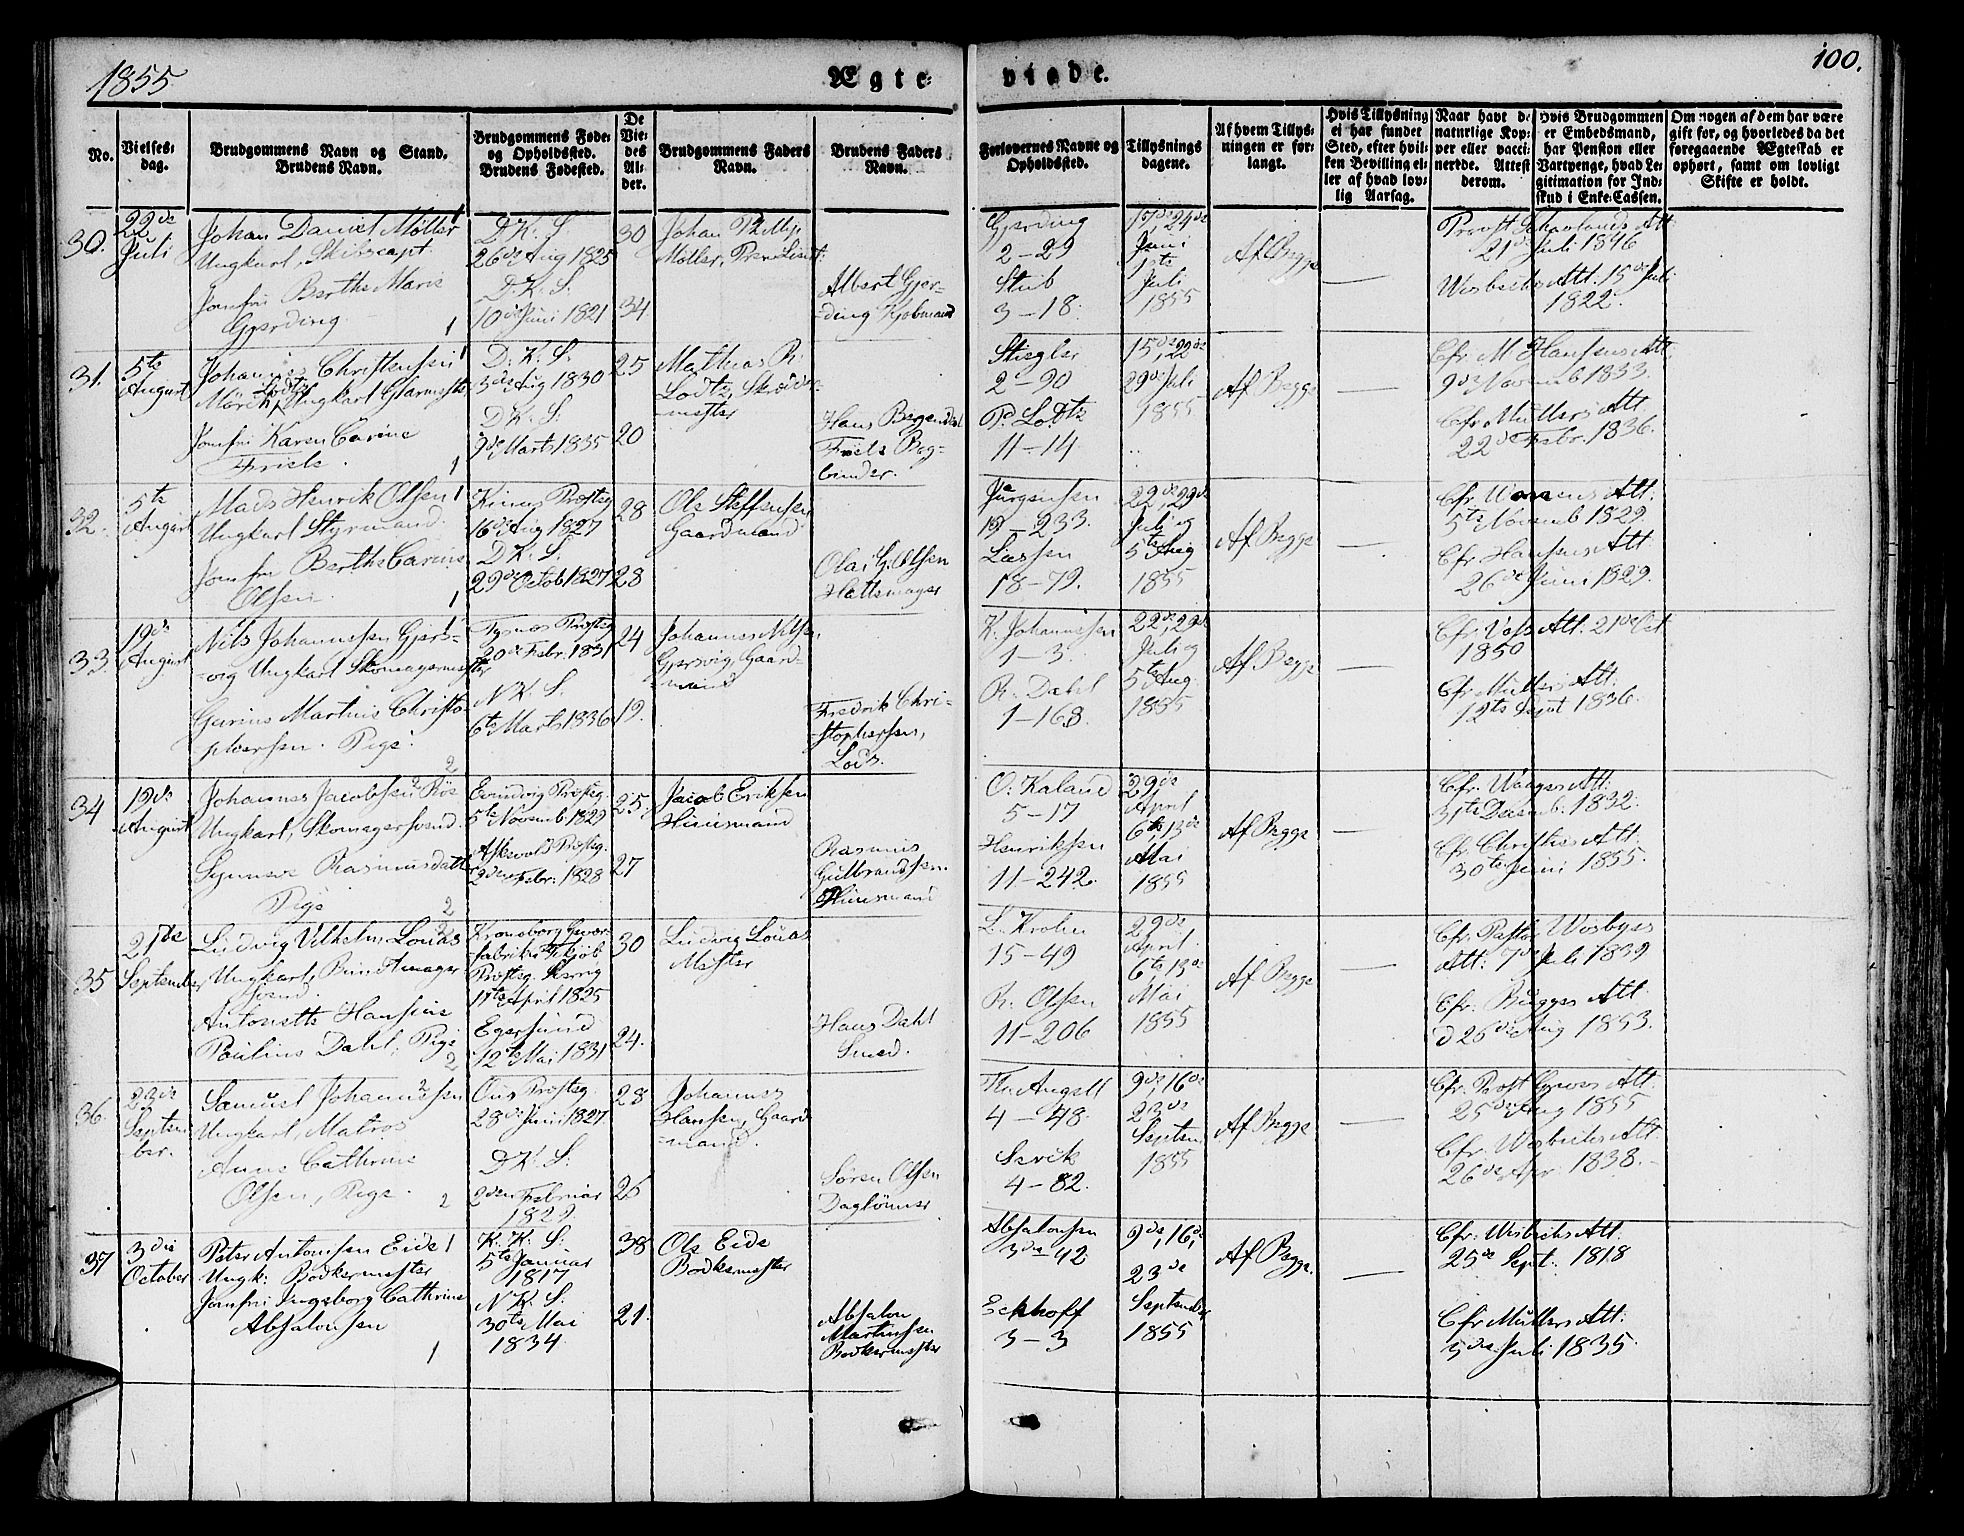 1855
Ægte-
viede.
100.
No.
Vielses-
dag.
Brudgommens Navn og Stand.
Brudens Navn.
Brudgommens Føde-
og Opholdssted.
Brudens Fødested.
De
Vie-
des
Al-
der.
Brudgommens Faders
Navn.
Brudens Faders
Navn.
Forlovernes Navne og
Opholdssted.
Tillysnings
dagene.
Af hvem Tillys-
ningen er for-
langt.
Hvis Tillysning
ei har fundet
Sted, efter hvil-
ken Bevilling el-
ler af hvad lov-
lig Aarsag.
Naar havt de
naturlige Kop-
per eller vacci-
nerede. Attest
derom.
Hvis Brudgommen
er Embedsmand,
har Pension eller
Vartpenge, hvad Le-
gitimation for Ind-
skud i Enke-Cassen.
Om nogen af dem har være
gift før, og hvorledes da det
foregaaende Ægteskab er
ophørt, samt om lovligt
Skifte er holdt.
30.
22de
Juli
Johan Daniel Møller 1
Ungkarl, Skibscapt.
Jomfru Berthe Marie
Gjerding. 1
D. K. S.
26de Aug 1825
D. K. S.
10de Juni 1821
30
34
Johan Phillip
Møller,
Albert Gjer-
-ding Kjøbmand
Gjerding
2-29
Stub
3-18.
17de, 24de
Juni
1ste
Juli
1855
Af Begge
—
21de Juli 1846
Wisbechs Att. 15de Juli
1822.
31.
5te
August
Johannes Christensen 1
Mörch Lodtz, Ungkarl Glarmester
Jomfru Karen Carine
Friele. 1
D. K. S.
3de Aug 1830
D. K. S.
9de Marts 1835
25
20
Mathias R.
Lodtz, Skræder-
-mester
Friele Bog-
binder.
Stiegler
2-90
P. Lodtz
11-14
15de, 22de
29de Juli
1855
Af Begge
—
Cfr. M Hansens Att.
9de Novemb 1833.
Cfr. Müllers Att.
22de Febr. 1836.
32.
5te
August
Mads Henrik Olsen 1
Ungkarl Styrmand.
Jomfru Berthe Carine
Olsen. 1
Kinns Prstg
16de Aug 1827
D. K. S.
29de Octob 1827
28
28
Ole Steffensen
Gaardmand
Olai G. Olsen
Hattemager
Jürgensen
19-233.
Lassen
18-79.
22de, 29de
Juli og
5te Aug
1855
Af Begge
—
5te Novemb 1829.
Cfr. Hansens Att.
26de Juni 1829.
33.
19de
August
Nils Johannessen Gjers-
-vig Ungkarl Skomagermester
Gurine Martine Christo-
phersen. Pige. 2
Tysnæs Prstg
20de Febr. 1831
N. K. S.
6te Marts 1836
24
19.
Johannes Nilsen
Gjersvig, Gaard-
-mand
Fredrik Chri-
-stophersen,
Lods.
K. Johannessen
1-3.
R. Dahl
1-168.
22de, 29de
Juli og
5te Aug.
1855
Af Begge
—
Cfr. Voss Att. 21de Oct
1850
Cfr. Müllers Att.
12te Sept 1836.
34
19de
August
Johannes Jacobsen 2 Riis
Ungkarl, Skomagersvend.
Synneve Rasmusdatter
Pige 2
Evindvig Prstg.
5te Novemb. 1829
Askevold Prstg.
2den Febr. 1828
25.
27
Jacob Eriksen
Huusmand
Rasmus
Gulbrandsen.
Huusmand
O. Kaland
5-17
Henriksen
11-242.
29de
April
6te, 13de
Mai
1855
Af Begge
—
31te Decemb. 1832.
Cfr. Christies Att.
30te Juni 1855.
35
21de
September
Ludvig Vilhelm Louias
Ungkarl, Bundtmager
svend.
Antonette Hansine
Pauline Dahl, Pige
2
Kronborg Gevær-
fabrik
11te April 1825
Egersund
12te Mai 1831
30
24.
Ludvig Louias
Mester
Hans Dahl
Smed.
L. Krohn
15-49
R. Olsen
11-206
29de
April.
6te, 13de
Mai
1855
Af Begge
—
Cfr. Pastor Wisbyes
Att. 7de Juli 1839
Cfr. Bugges Att.
d 25de Aug 1853.
36.
23de
Septem-
ber.
Samuel Johannessen 2
Ungkarl, Matros
Anne Cathrine
Olsen, Pige. 2
Ous Prstg.
28de Juni 1827.
D. K. S.
2den Februar
1829
28
26
Johannes
Hansen, Gaard-
-mand.
Søren Olsen
Daglønner
Th. Angell
4-48.
Sævik
4-82.
9de, 16de
23de
Septem.
1855
Af Begge
—
25de Aug 1855
Cfr. Wisbechs Att.
26de Apr. 1838.
37
3die
October
Peter Antonssen Eide 1
Ungk: Bødkermester
Jomfru Ingeborg Cathrine
Absalonsen
1
K. K. S.
5te Januar
1817
N. K. S.
30te Mai
1834.
38
21.
Ole Eide
Bødkermester
Absalon
Martinssen
Bødkermester
Absalonsen
3de-42
Eckhoff
3-3
9de, 16de,
23de
September
1855
Af Begge.
—
Cfr. Wisbechs Att.
25de Sept. 1818
Cfr Müllers Att.
5de Juli 1835.